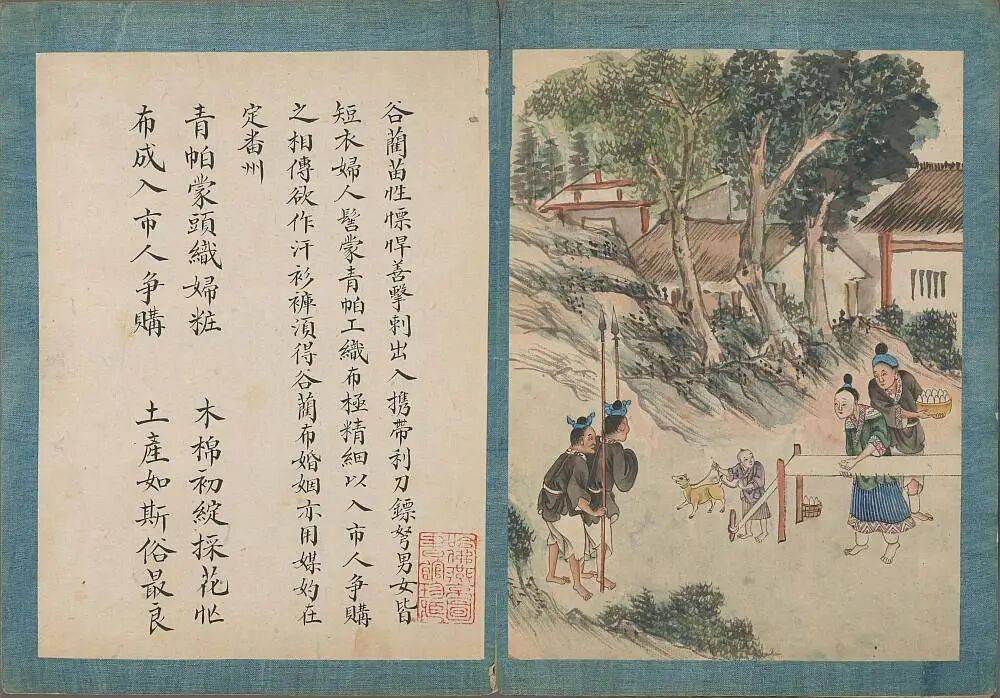 谷藺苗性慓悍善擊刺出入携帶利刀鏢弩男女皆
短衣婦人髻蒙青帕工織布極精細以入市人争購
之相傳欲作汗衫褲湏得谷藺布婚姻亦用媒妁在
定番州
青帕蒙頭織婦粧 木棉初綻採花忙
布成入市人争購 土產如斯俗最良